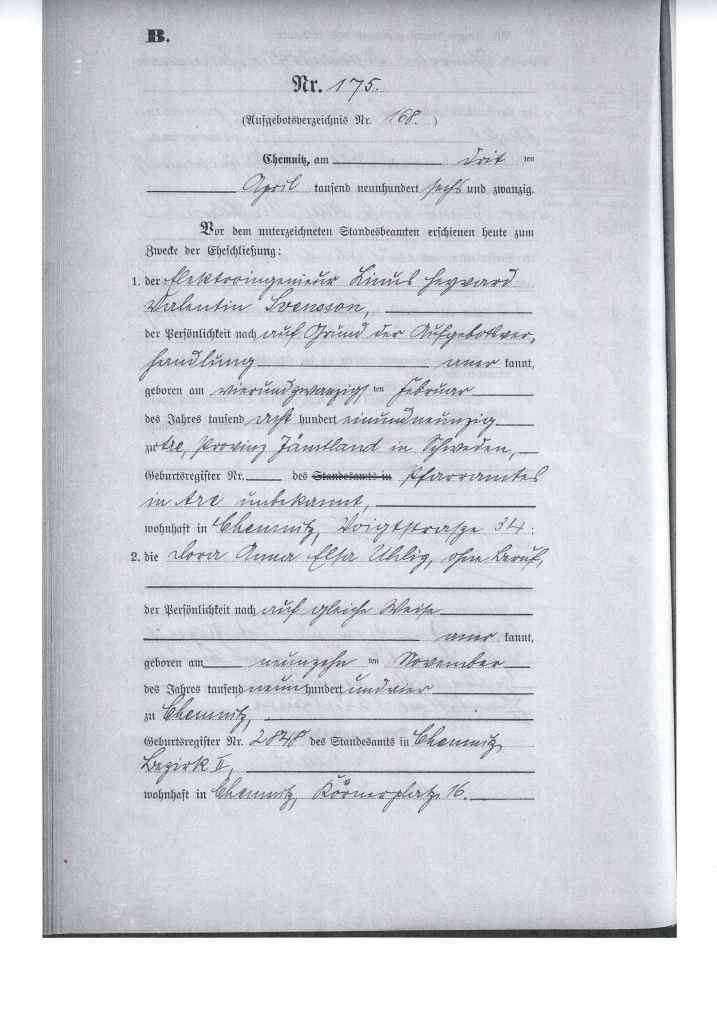 B.
Nr. 175.
(Aufgebotsverzeichnis Nr. 168.)
Chemnitz, am drit ten
April tausend neunhundert sechs und zwanzig.
Vor dem unterzeichneten Standesbeamten erschienen heute zum
Zwecke der Eheschließung:
1. der Elektroingenieur Linus Hegvard
Valentin Svensson,
der Persönlichkeit nach auf Grund der Aufgebotsver-
handlung aner kannt,
geboren am vierundzwanzigs ten Februar
des Jahres tausend acht hundert einundneunzig
zu Are, Provinz Jämtland in Schweden,
Geburtsregister Nr. des Standesamts in Pfarramtes
in Are unbekannt,
wohnhaft in Chemnitz, Voigtstrasze 34.
2. die Dora Anna Elsa Uhlig, ohne Beruf,
der Persönlichkeit nach auf gleiche Weise
aner kannt,
geboren am neunzehn ten November
des Jahres tausend neun hundert und vier
zu Chemnitz,
Geburtsregister Nr. 2848 des Standesamts in Chemnitz
Bezirk II,
wohnhaft in Chemnitz, Körnerplatz 16.